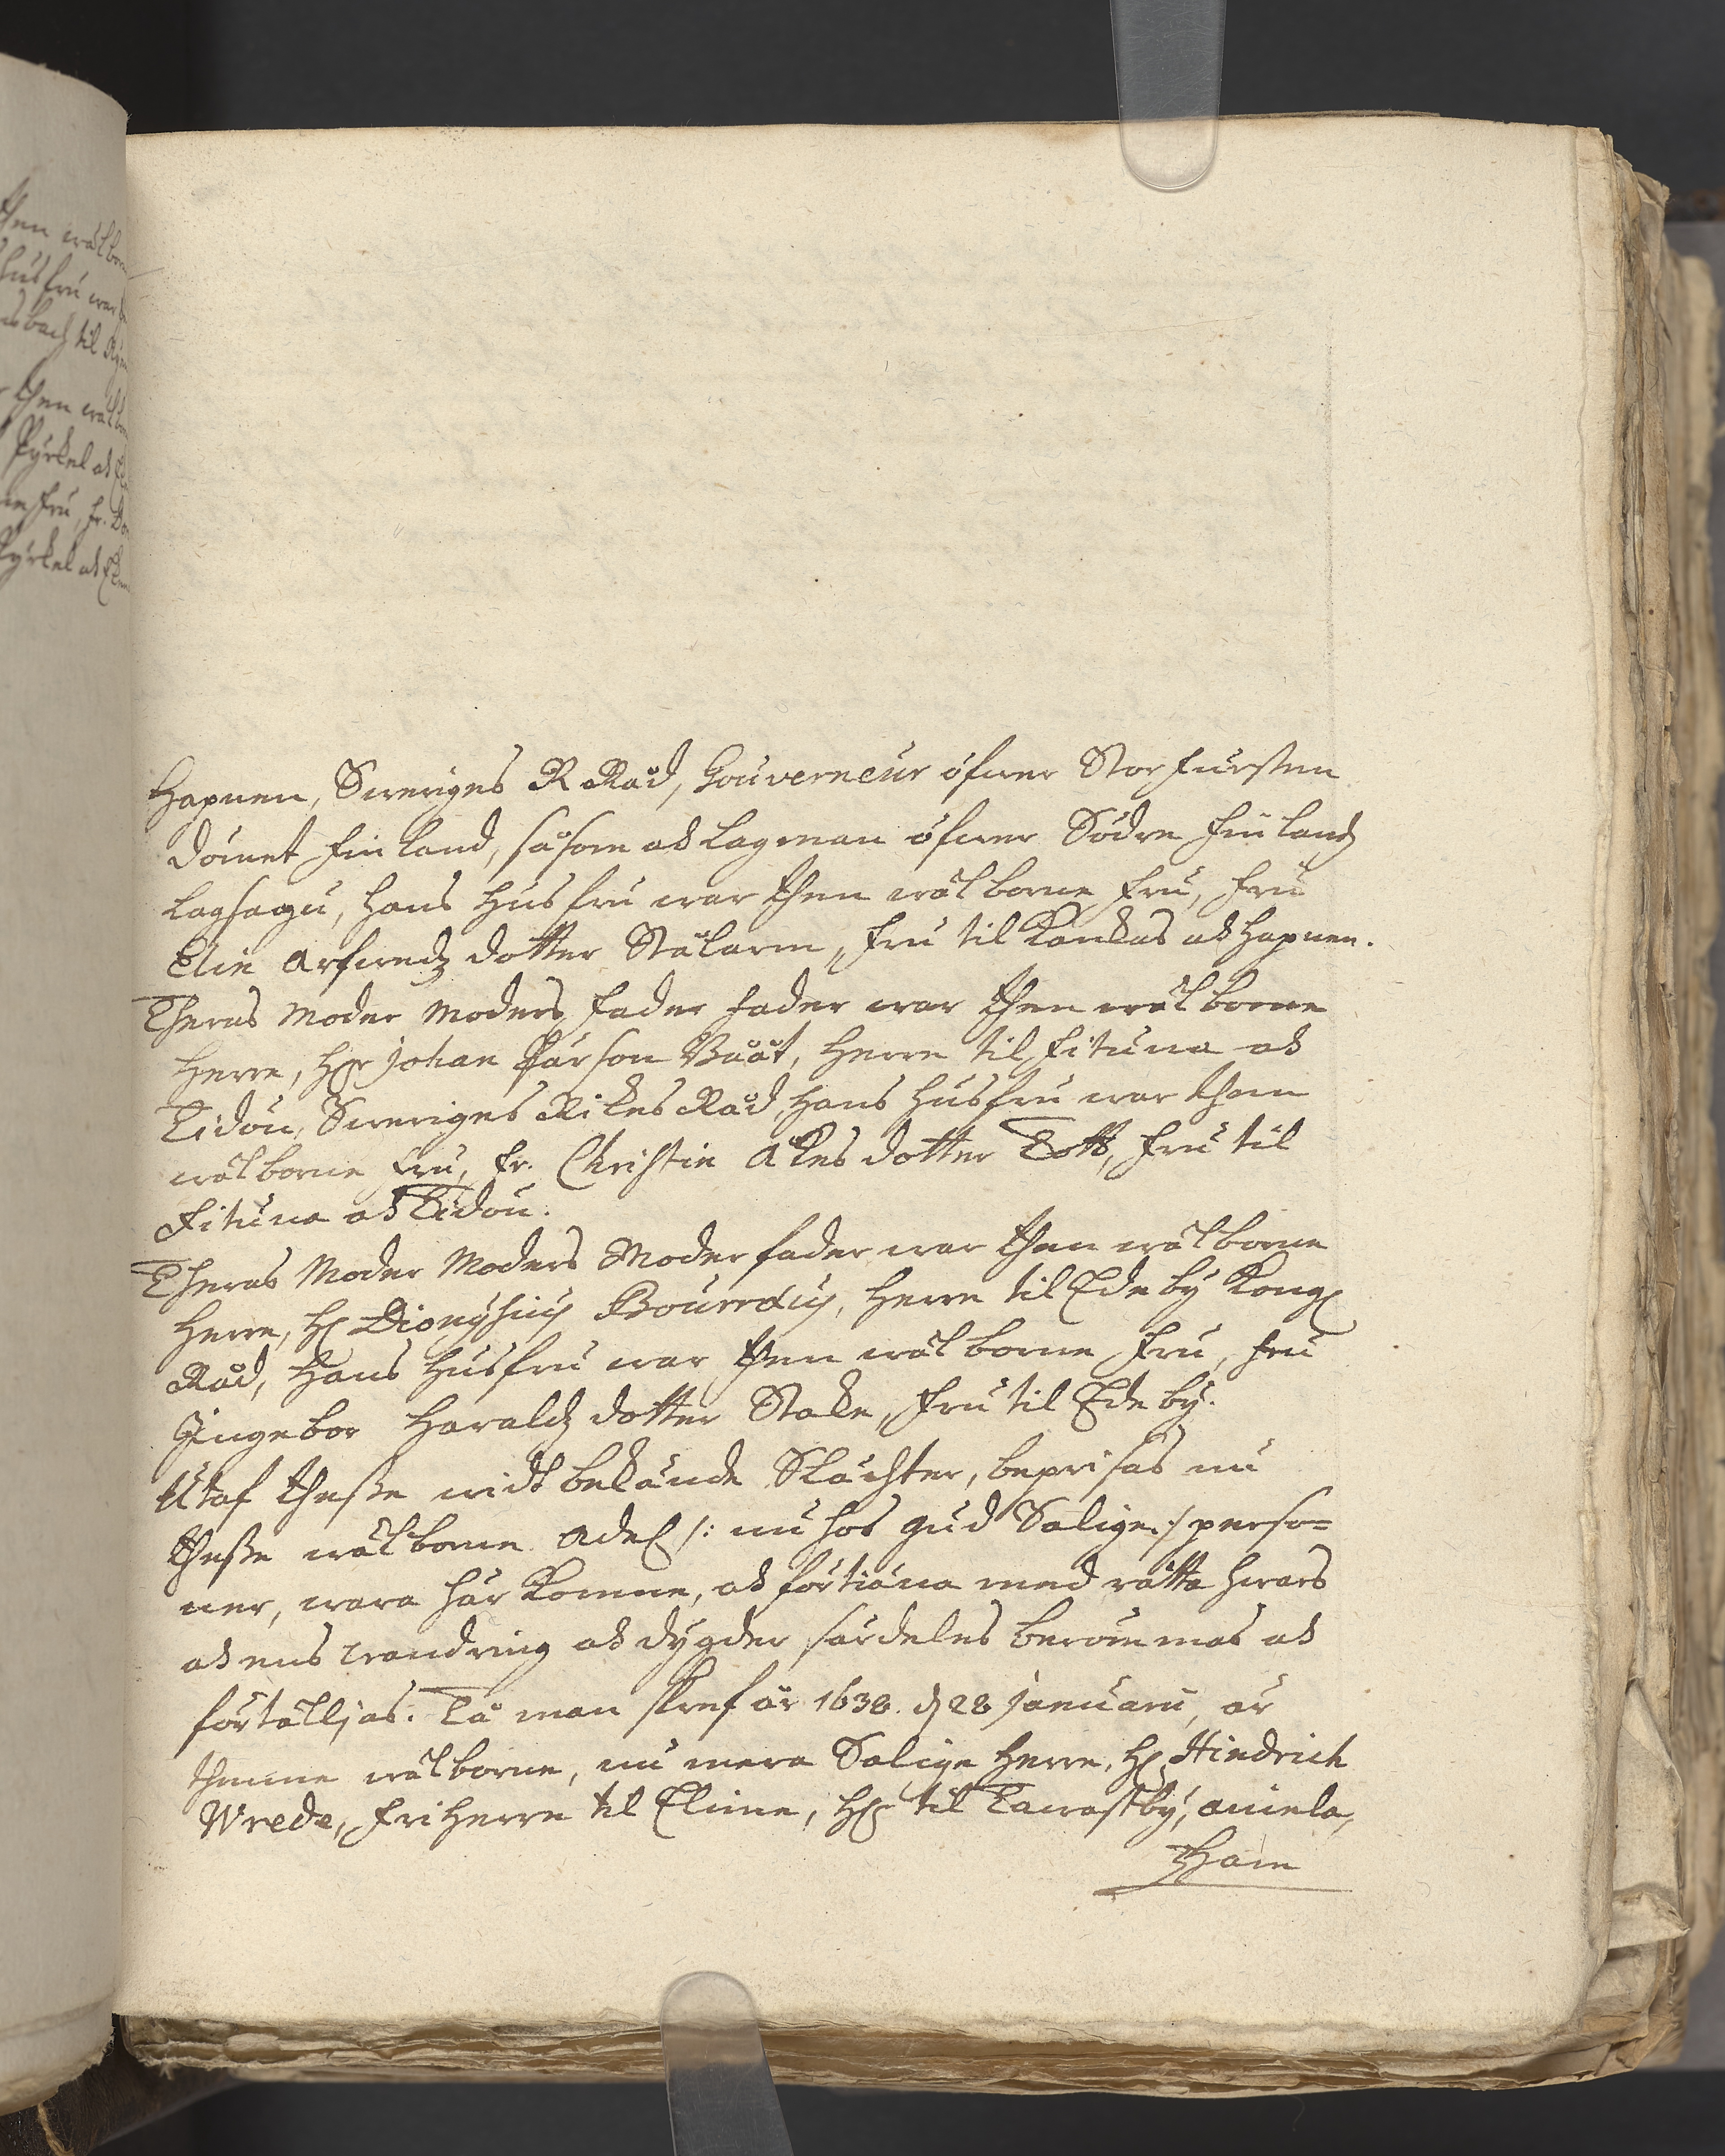 then wälbor
husfru war
nsbach til
then wälbor
Pyrkel ok
fru, fr.
Pyrkel ok
Hapnen, Sweriges R Råd, Gouverneur öfwer Storfursten
dömet Finland, såsom ok lagman öfwer Södre Finlandz
lagsagu, hans husfru war then wälborne fru, fru
Elin Arfwedz dotter Stålarm, fru til Kankas ok Hapnen.
Theras Moder Moders fader fader war then wälborne
Herre, Her Johan Pärson Bååt, Herre til Fituna ok
Tidön, Sweriges Rikes Råd, hans husfru war then
wälborne fru, fr. Christin Åkes dotter Tott, fru til
Fituna ok Tidön.
Theras Moder Moders Moder fader war then wälborne
Herre, H. Dionysius Bourrdus, Herre til Edeby Kong.
Råd, Hans husfru war then wälborne fru, fru
Ingebor Haraldz dotter Stake, fru til Edeby.
Utaf thesse widt bekände Slächter, beprisas nu
thesse wälborne Adel /: nu hos Gud Salige :/ perso=
ner, wara här Komne, ok förtiäna med rätta hwars
ok ens wandring ok dygder särdeles berömmas ok
förtälljas. Tå man skref år 1638. d 28 Januarii, är
thenne wälborne, nu mera Salige Herre, H. Hindrich
Wrede, fri Herre til Elime, Her til Tawastby, Aniela,
Tham